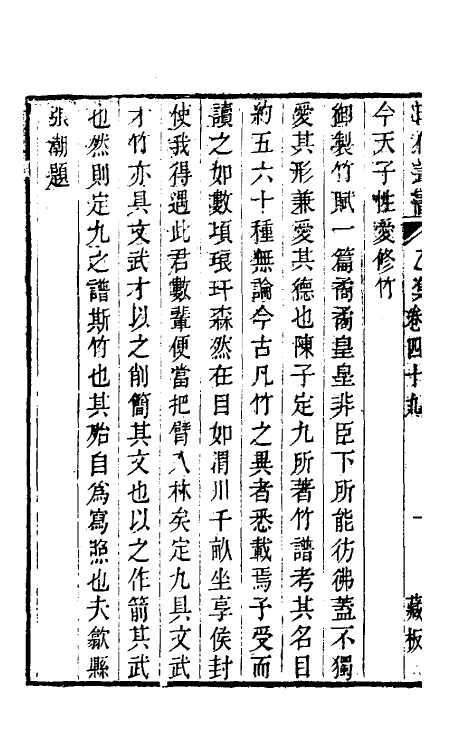 乙集卷四十九
一
藏板
今天子性愛修竹
御製竹賦一篇矞矞皇皇非臣下所能彷彿蓋不獨
愛其形兼愛其德也陳子定九所著竹譜考其名目
約五六十種無論今古凡竹之異者悉載焉予受而
讀之如數項琅玕森然在目如渭川千畝坐享侯封
使我得遇此君數輩便當把臂入林矣定九具文武
才竹亦具文武才以之削簡其文也以之作箭其武
也然則定九之譜斯竹也其殆自爲寫照也夫歙縣
張潮題